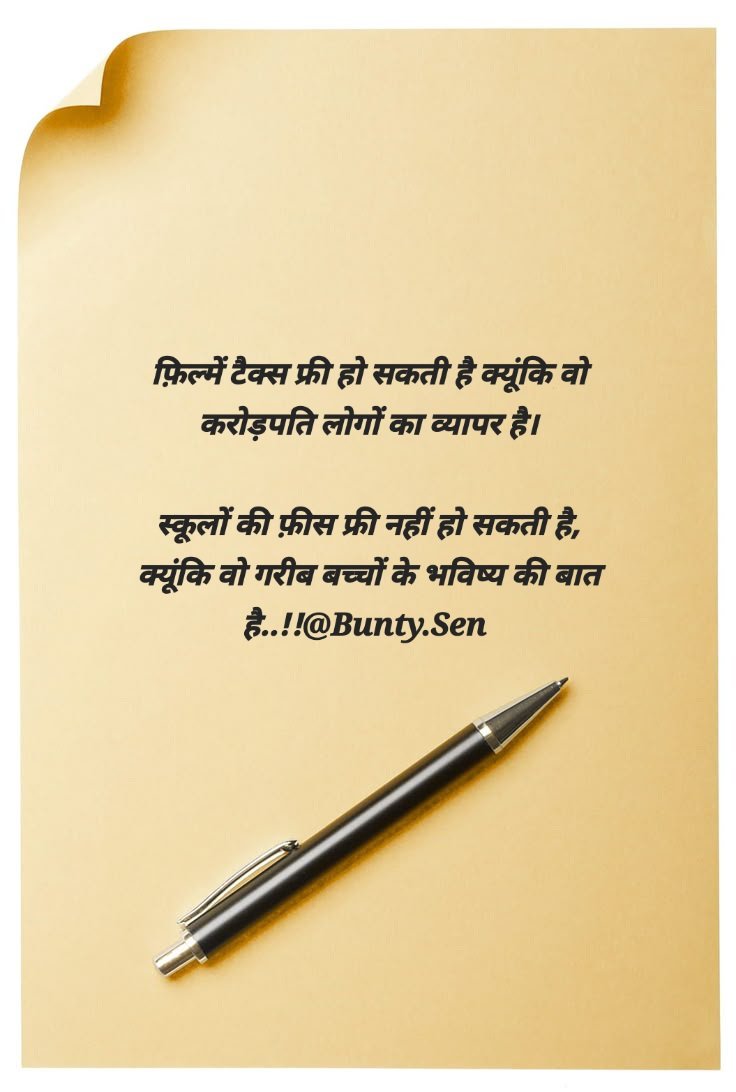 फ़िल्में टैक्स फ्री हो सकती है क्यूंकि वो
करोड़पति लोगों का व्यापर है।
स्कूलों की फ़ीस फ्री नहीं हो सकती है,
क्यूंकि वो गरीब बच्चों के भविष्य की बात
है..!!@Bunty.Sen